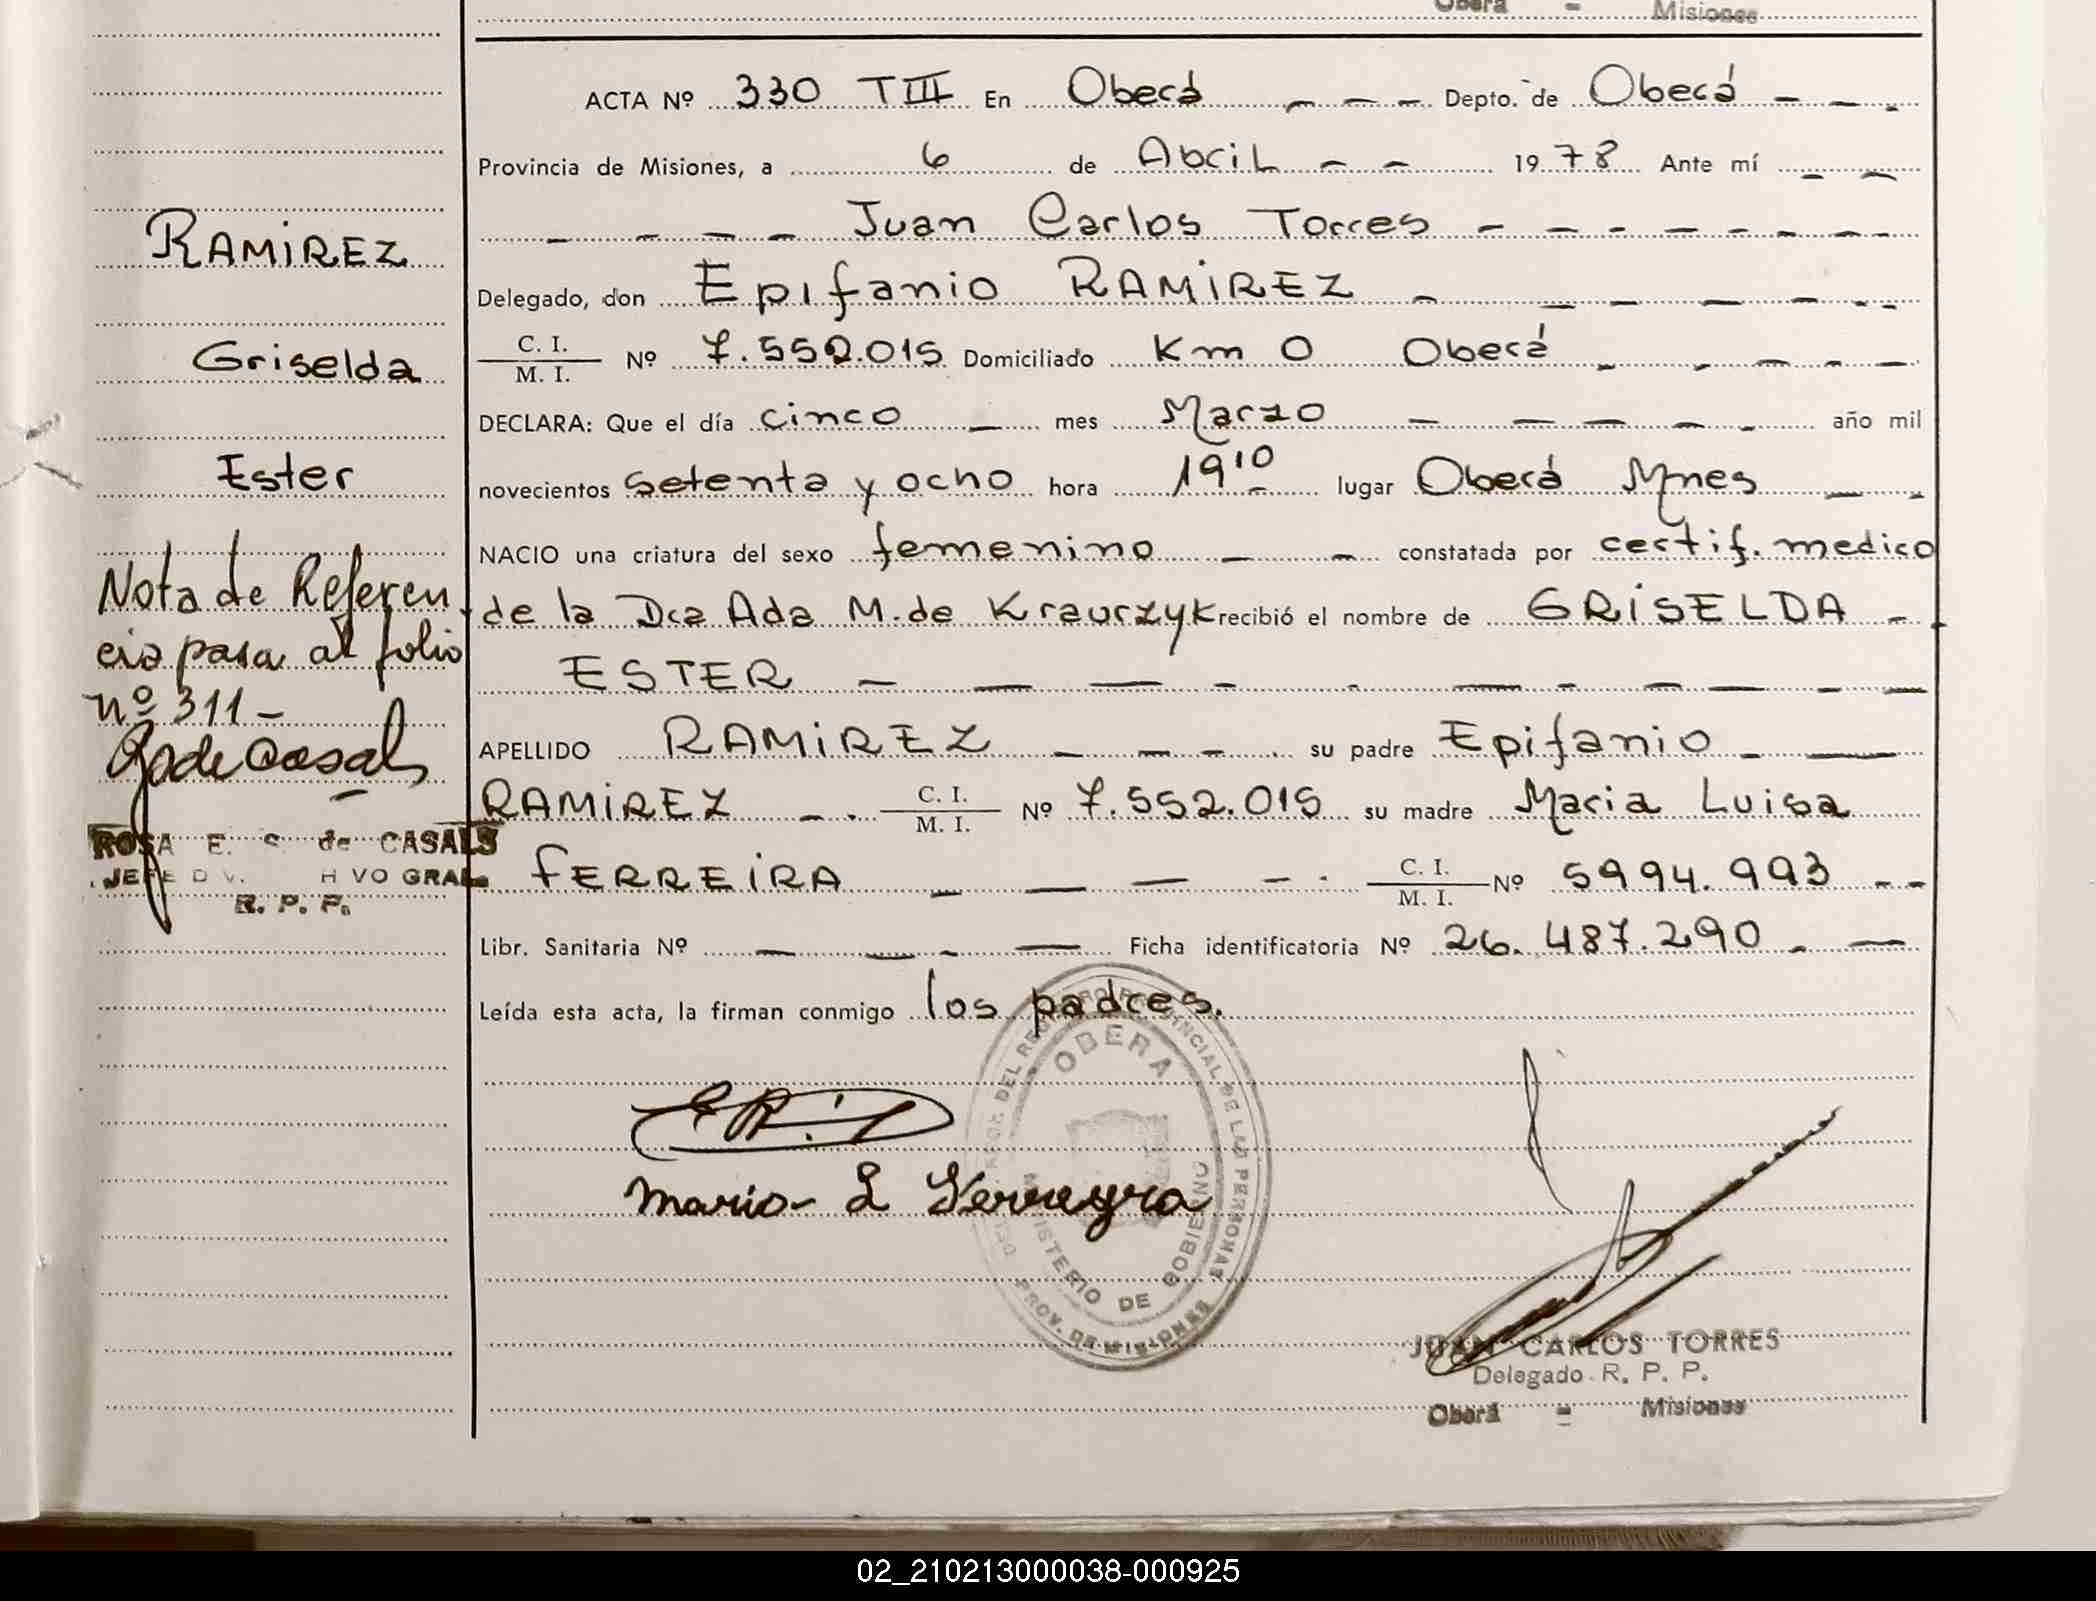 Oberá - Misiones
ACTA Nº 330 TIII En Oberá - - - Depto. de Oberá - - -
Provincia de Misiones, a 6 de Abril - - 1978 Ante mí - -
- - - - Juan Carlos Torres - - - - - - - -
Delegado, don Epifanio RAMIREZ - - - - - - -
C. I.
M. I. Nº 7.552.015 Domiciliado Km 0 Oberá - - - - -
DECLARA: Que el día cinco - mes Marzo - - - - - año mil
novecientos setenta y ocho hora 19 10 lugar Oberá Mnes - -
NACIO una criatura del sexo femenino - - constatada por certif. medico
de la Dra Ada M. de Kraurzyk recibió el nombre de GRISELDA -
ESTER - - - - - - - - - - -
APELLIDO RAMIREZ - - - su padre Epifanio - -
RAMIREZ - . C. I.
M. I. Nº 7.552.015 su madre Maria Luisa
FERREIRA - - - - . C. I.
M. I. Nº 5994.993 - -
Libr. Sanitaria Nº - - - - Ficha identificatoria Nº 26.487.290 - -
Leída esta acta, la firman conmigo los padres.
RAMIREZ
Griselda
Ester
Nota de Referen
cia pasa al folio
nº 311 -
R de Casals
ROSA E. S. de CASALS
R. P. P.
OBERA
MINISTERIO DE GOBIERNO
PROV. DE MISIONES
Maria L Ferreyra
JUAN CARLOS TORRES
Delegado R. P. P.
Oberá - Misiones
02_210213000038-000925